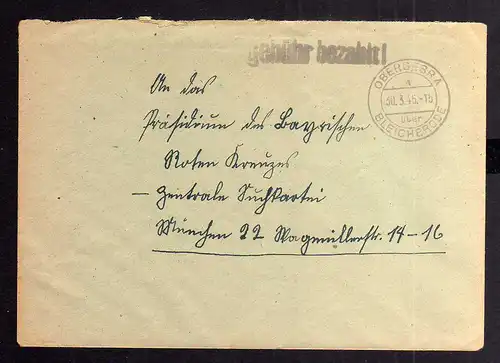 gebühr bezahlt!
OBERGEBRA
a
30.3.46.-18
über
BLEICHERODE
An das
Präsidium des Bayrischen
Roten Kreuzes
– Zentrale Suchkartei
München 22 Wagmüllerstr. 14-16